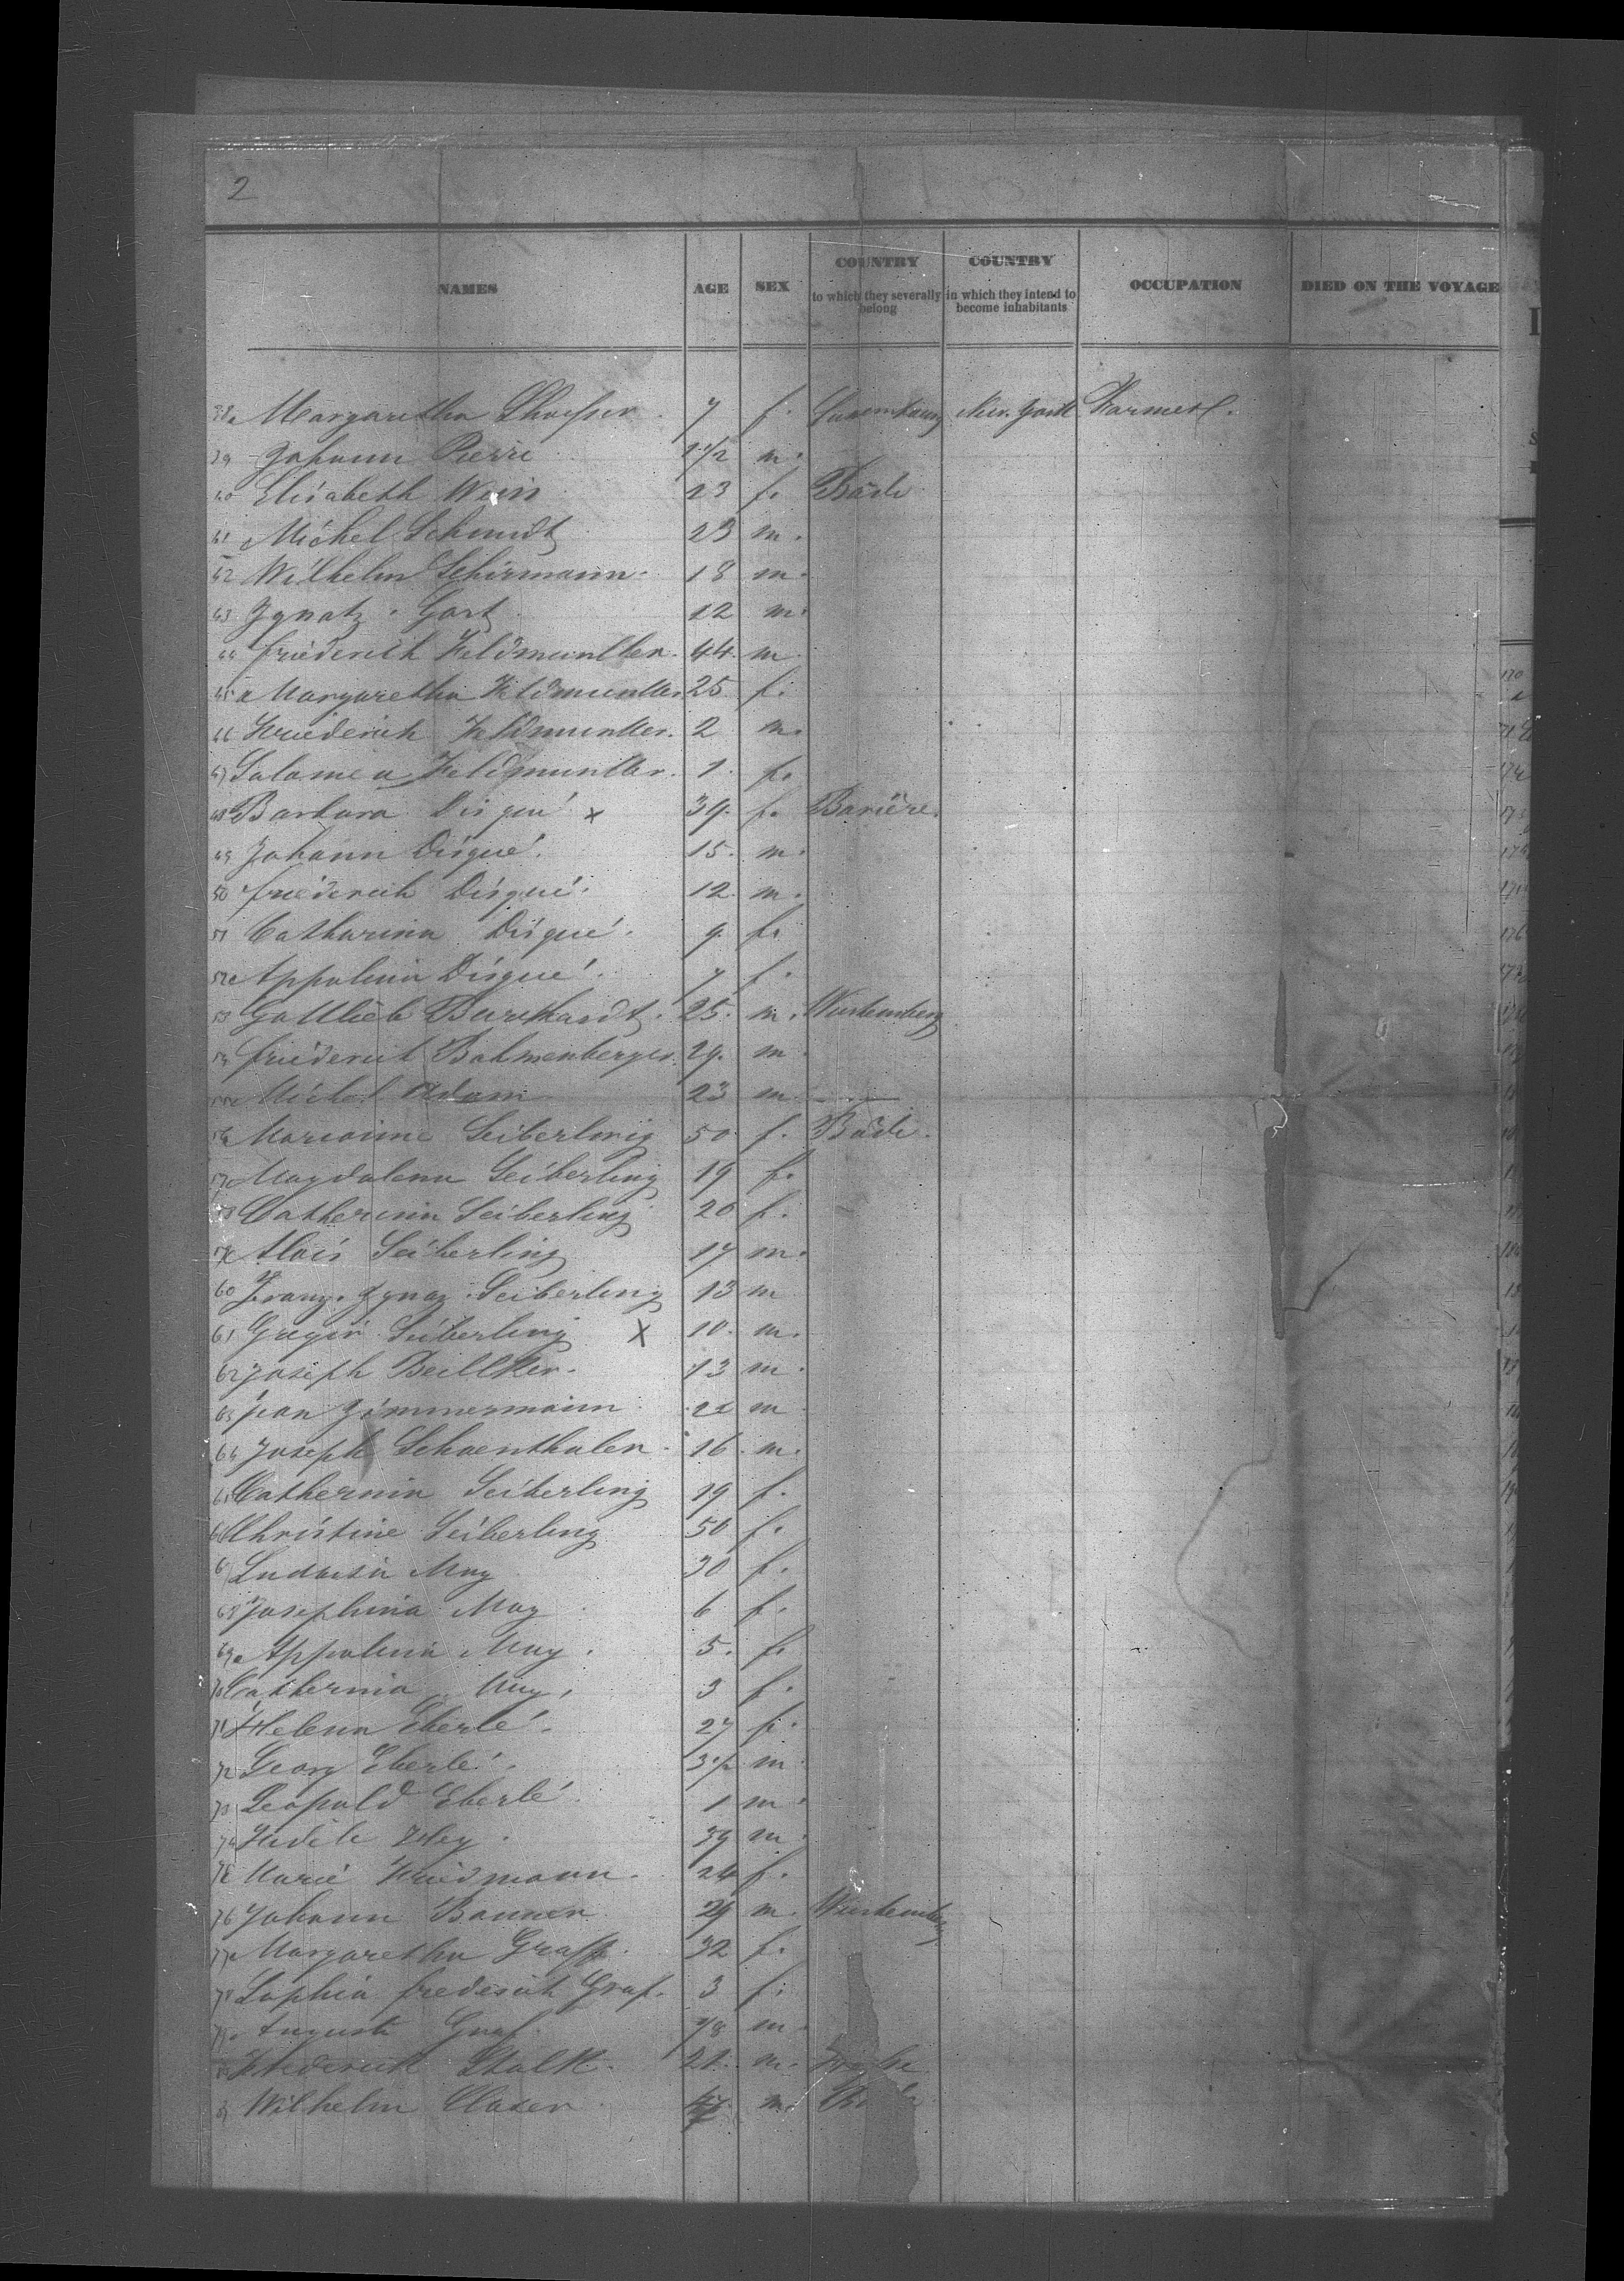 2
NAMES AGE SEX COUNTRY to which they severally belong COUNTRY in which they intend to become inhabitants OCCUPATION DIED ON THE VOYAGE
38 Margaretha 7 f. Luxemburg New York Farmer.
39 Johann Pierre 1 1/2 m.
40 Elisabeth Weiss 23 f. Bade
41 Michel Schmidt 23 m.
42 Wilhelm Schirmann. 18 m.
43 Ignatz Gart 12 m.
44 Friederich Feldmuntler. 44. m.
45 Margaretha Feldmuntler 25 f.
46 Friederich Feldmuntler. 2 m.
47 Salomea Feldmuntler. 1. f.
48 Barbara Disqué x 39. f. Bavière.
49 Johann Disqué. 15. m.
50 Friederich Disqué. 12. m.
51 Catharina Disqué. 9. f.
52 Appolinia Disqué. 7 f.
53 Gottlieb Burkhardt. 25. m. Wurtemberg
54 Friederich Bahmenberger. 29. m
55 Michel Adam 23 m
56 Marianne Seiberling 50 f. Bade.
57 Magdalena Seiberling 19 f.
58 Catherina Seiberling 20 f.
59 Alois Seiberling 17 m.
60 Franz. Ignaz. Seiberling 13 m
61 Gregor Seiberling X 10. m.
62 Joseph Beillker. 13 m.
63 Jean Zimmermann 22 m
64 Joseph Schaenthaler. 16. m.
65 Catherina Seiberling 19 f.
66 Christine Seiberling 50 f.
67 May 30 f.
68 Josephina May 6 f.
69 Appolinia May. 5. f.
70 Catherina May, 3 f.
71 Helena Eberlé. 27 f.
72 Georg Eberlé. 3 1/2 m
73 Leopold Eberlé. 1 m.
74 Fidèle 39 m.
75 Marie Friedmann. 24 f.
76 Johann Bauner 29 m. Wurtemberg
77 Margaretha Graff. 32 f.
78 Sophia Frederich Graf. 3 f.
79 Auguste Graf. m.
80 Frederick Stalk. 21. m.
81 Wilhelm Claser m.